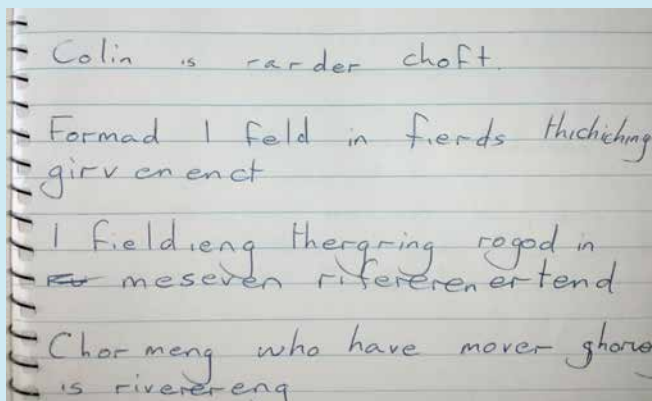 Colin is rarder choft.
Formad I feld in fierds thichiching
girvenenct
I fieldieng thergring rogod in
meseven rifererenertend
Chormeng who have mover ghorve
is riverereng